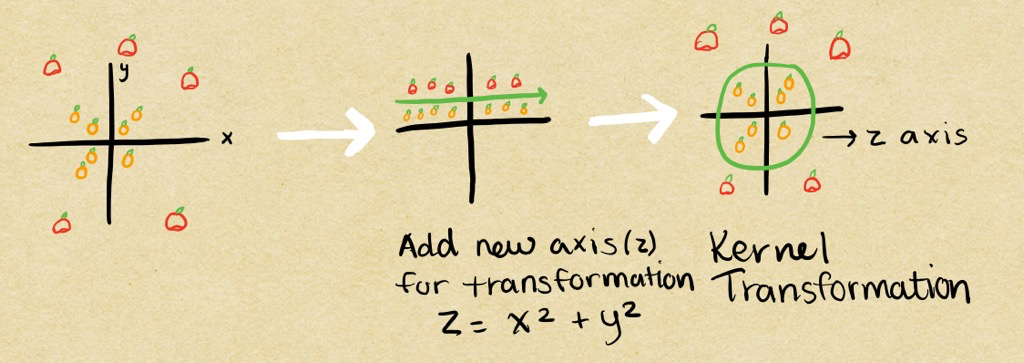 y
x
Add new axis(z)
for transformation
Z = x² + y²
→ z axis
Kernel
Transformation